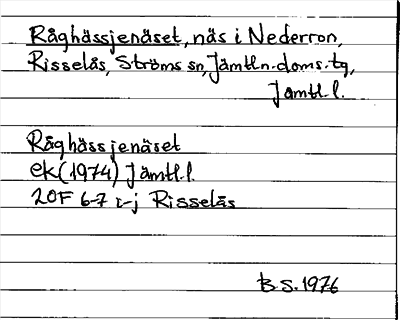 Råghässjenäset, näs i Nederron,
Risselås, Ströms sn, Jämtl.n.doms.tg,
Jämtl.l.
Råghässjenäset
ek (1974) Jämtl.l.
20F 6-7 i-j Risselås
B.S. 1976